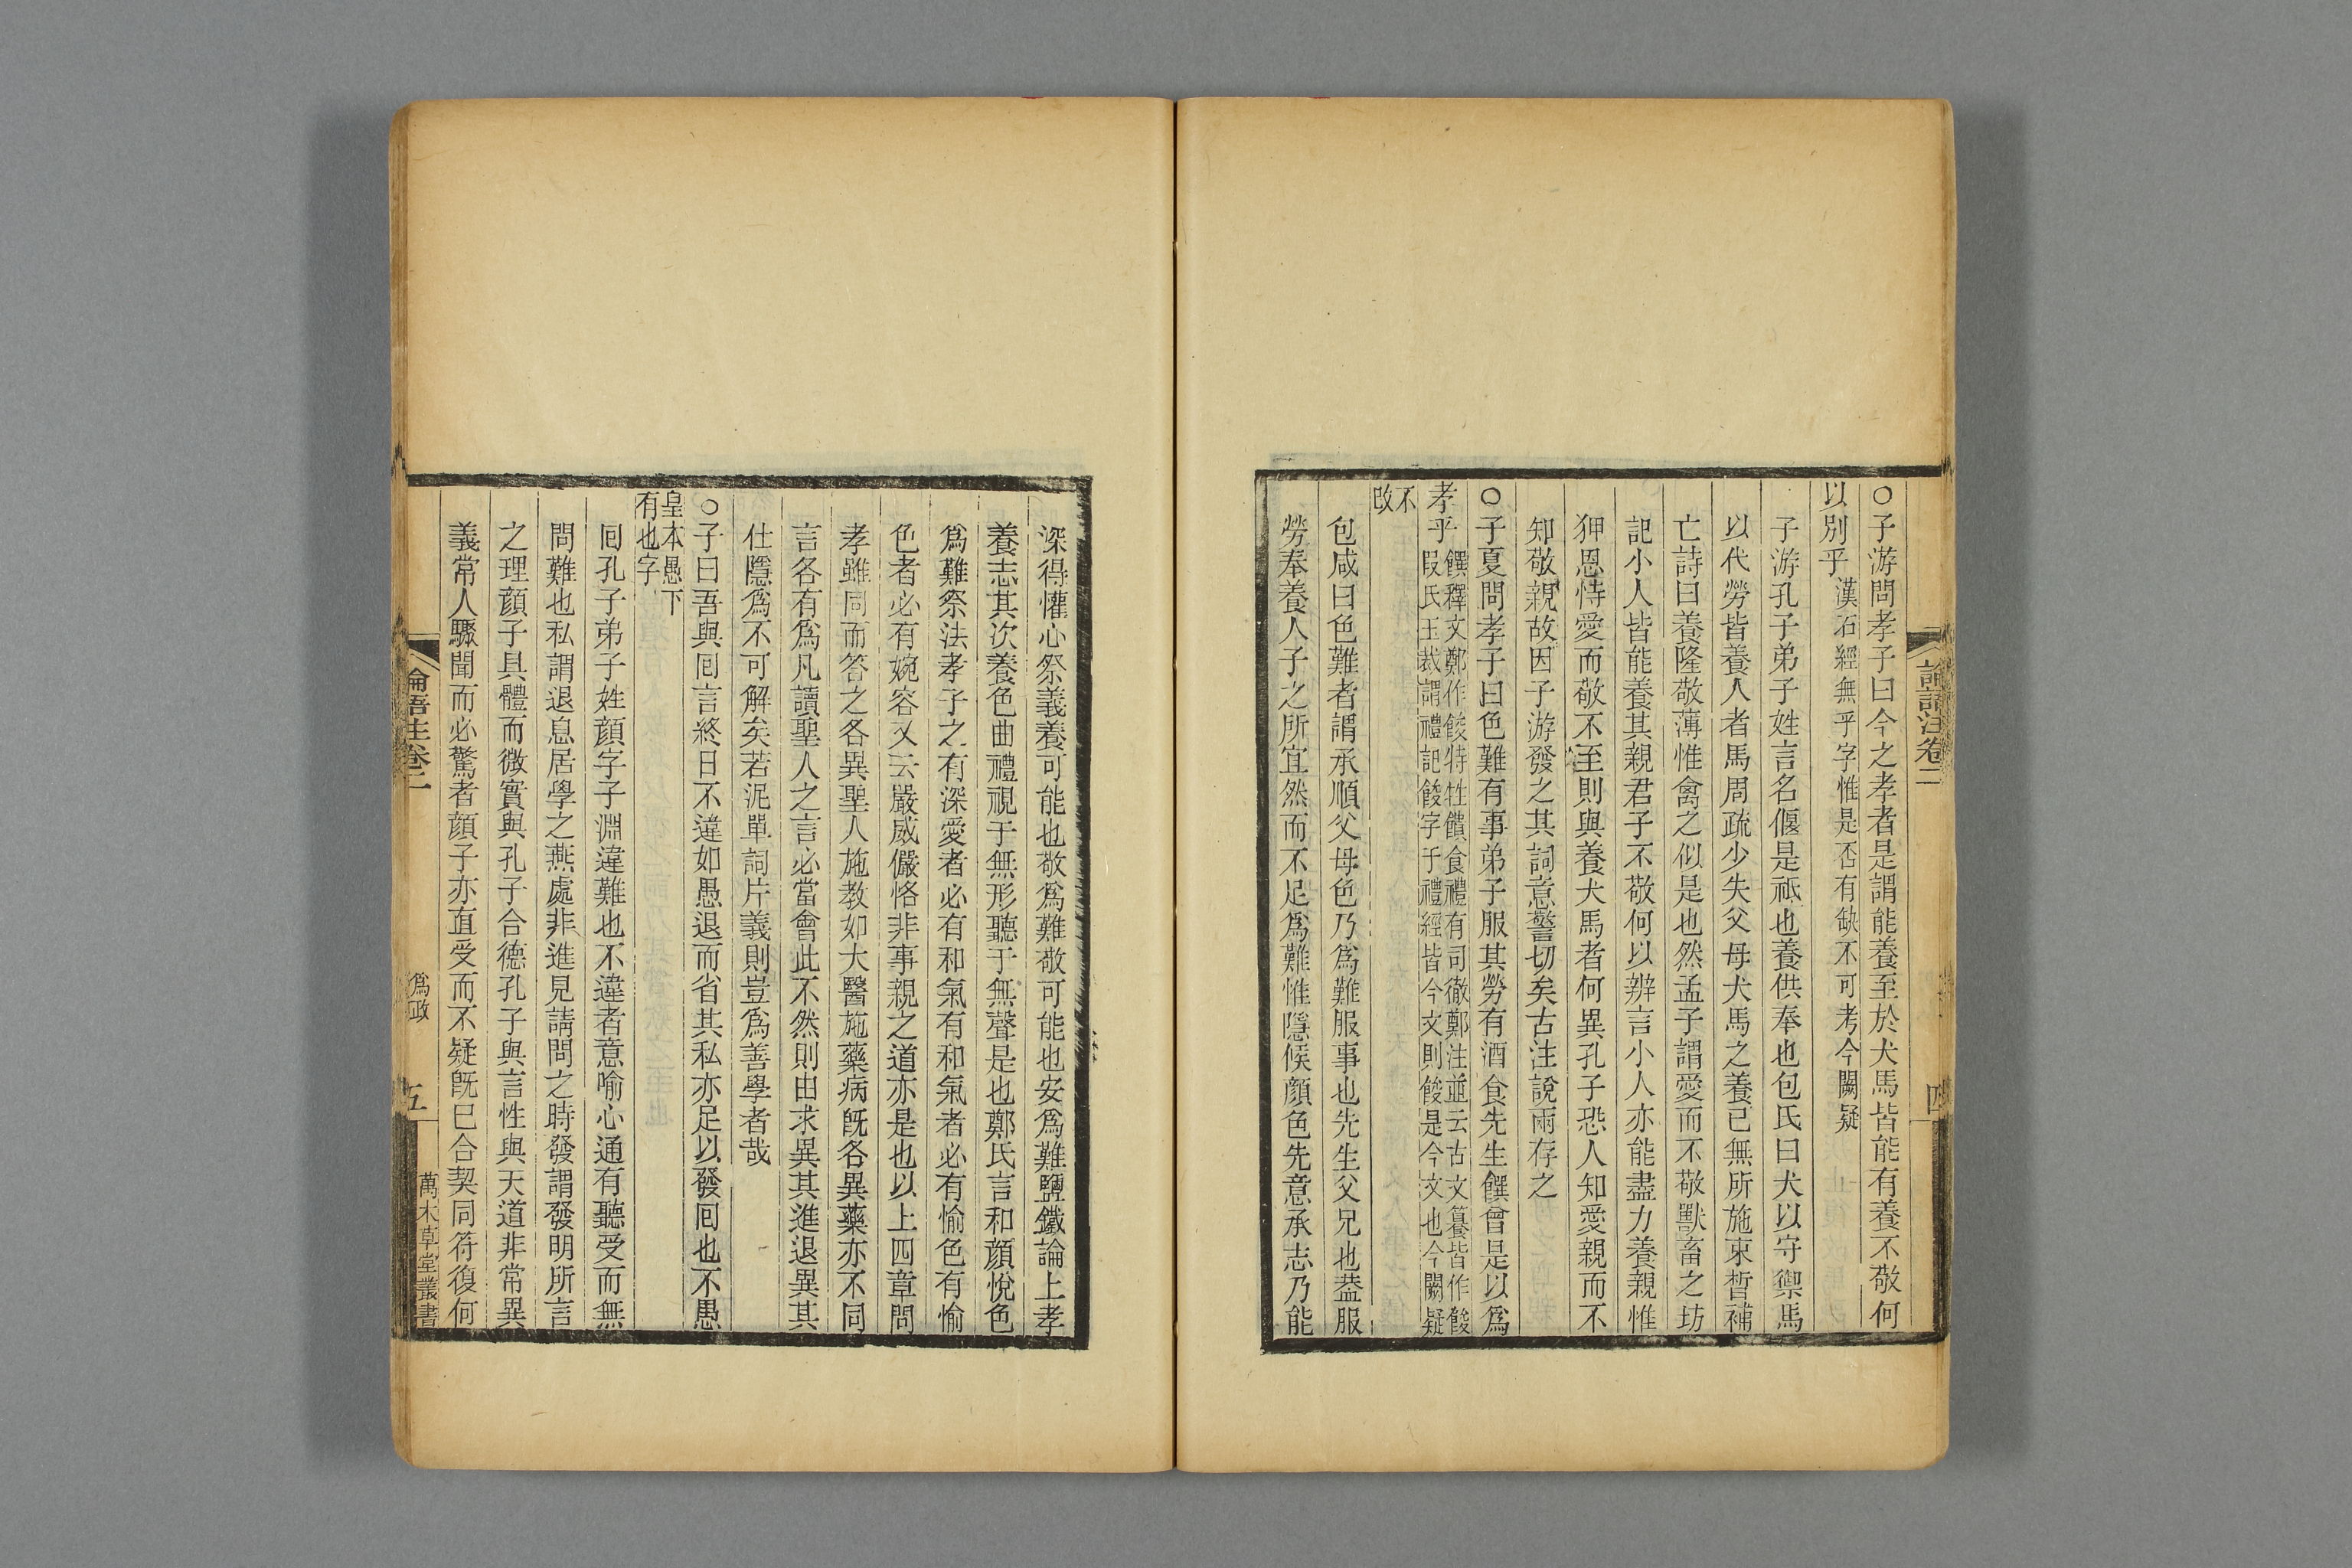 論語注卷二
四
○子游問孝子曰今之孝者是謂能養至於犬馬皆能有養不敬何
以別乎漢石經無乎字惟是否有缺不可考今闕疑
子游孔子弟子姓言名偃是祗也養供奉也包氏曰犬以守禦馬
以代勞皆養人者馬周疏少失父母犬馬之養已無所施束晳補
亡詩曰養隆敬薄惟禽之似是也然孟子謂愛而不敬獸畜之坊
記小人皆能養其親君子不敬何以辨言小人亦能盡力養親惟
狎恩恃愛而敬不至則與養犬馬者何異孔子恐人知愛親而不
知敬親故因子游發之其詞意警切矣古注說兩存之
○子夏問孝子曰色難有事弟子服其勞有酒食先生饌曾是以爲
孝乎
饌釋文鄭作餕特牲饋食禮有司徹鄭注並云古文䉵皆作餕
段氏玉裁謂禮記餕字于禮經皆今文則餕是今文也今闕疑
不
改
包咸曰色難者謂承順父母色乃爲難服事也先生父兄也葢服
勞奉養人子之所宜然而不足爲難惟隱候顔色先意承志乃能
深得懽心祭義養可能也敬爲難敬可能也安爲難鹽鐵論上孝
養志其次養色曲禮視于無形聽于無聲是也鄭氏言和顔悅色
爲難祭法孝子之有深愛者必有和氣有和氣者必有愉色有愉
色者必有婉容又云嚴威儼恪非事親之道亦是也以上四章問
孝雖同而答之各異聖人施教如大醫施藥病旣各異藥亦不同
言各有爲凡讀聖人之言必當會此不然則由求異其進退異其
仕隱爲不可解矣若泥單詞片義則豈爲善學者哉
○子曰吾與回言終日不違如愚退而省其私亦足以發回也不愚
皇本愚下
有也字
回孔子弟子姓顔字子淵違難也不違者意喻心通有聽受而無
問難也私謂退息居學之燕處非進見請問之時發謂發明所言
之理顔子具體而微實與孔子合德孔子與言性與天道非常異
義常人驟聞而必驚者顔子亦直受而不疑旣已合契同符復何
論語注卷二
爲政
五
萬木草堂叢書